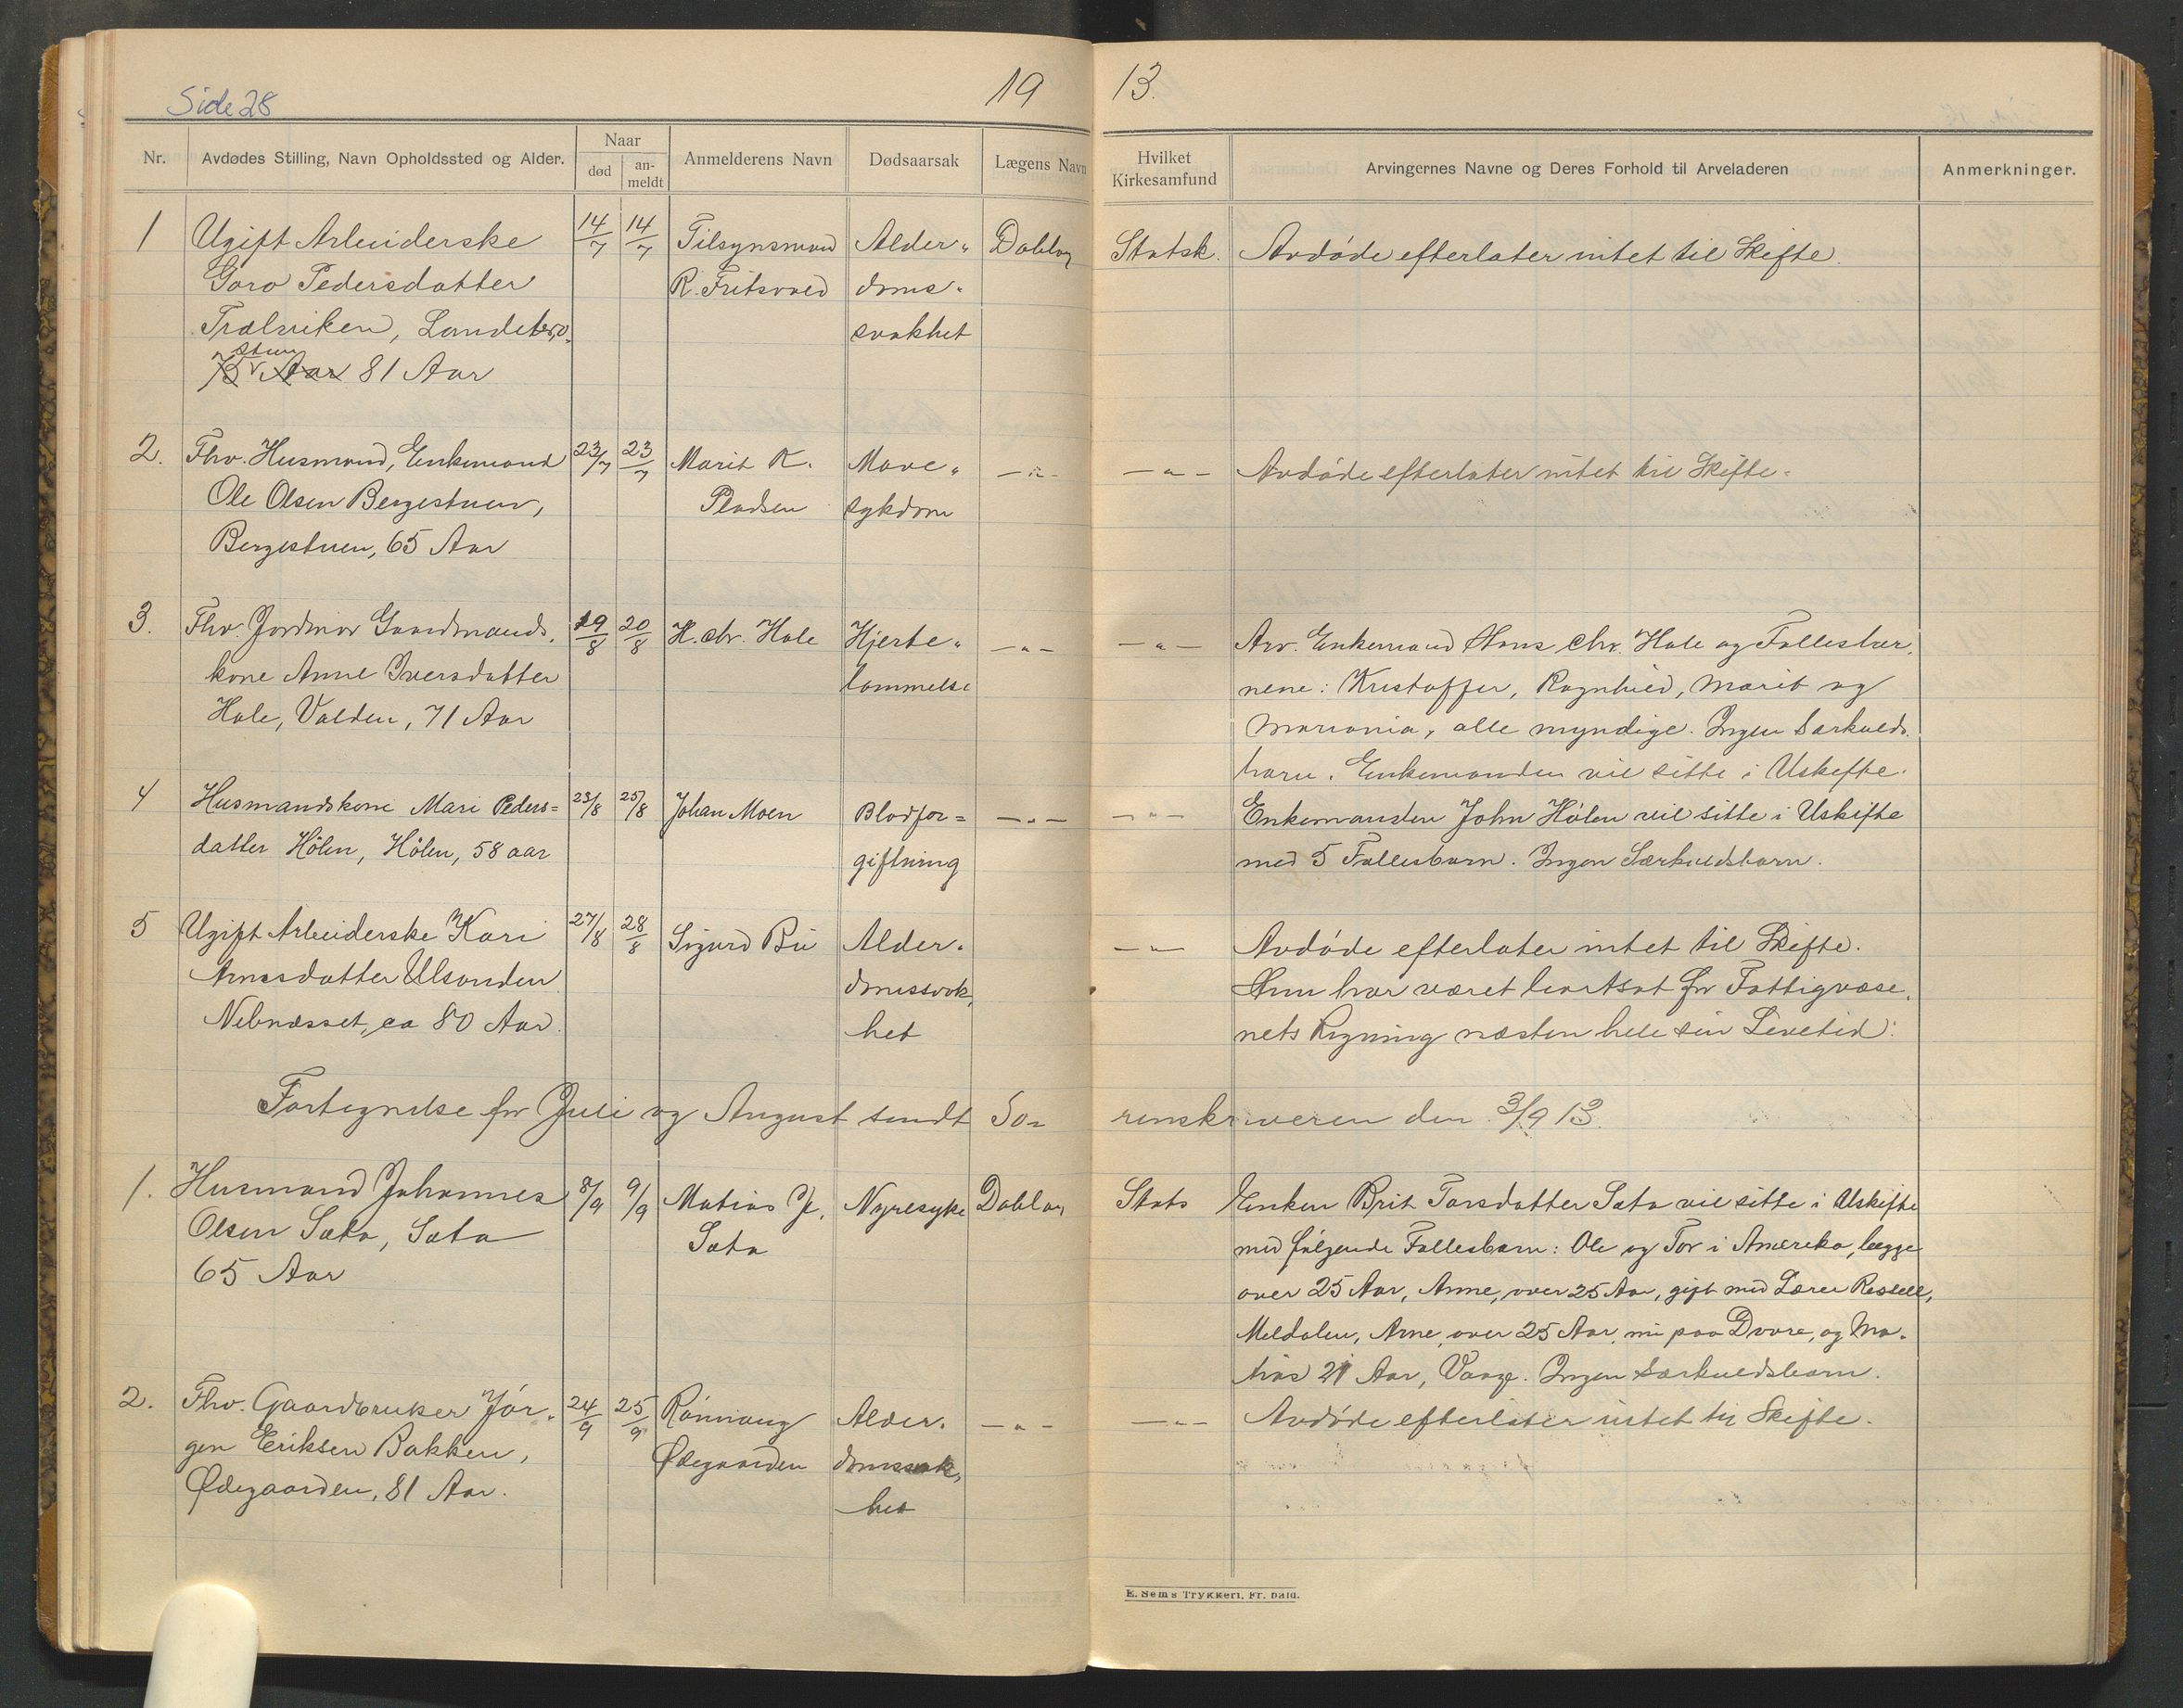 Side 28
19
13.
Nr.
Avdødes Stilling, Navn Opholdssted og Alder.
Naar
død
an-
meldt
Anmelderens Navn
Dødsaarsak
Lægens Navn
Hvilket
Kirkesamfund
Arvingernes Navne og Deres Forhold til Arveladeren
Anmerkninger.
1 Ugift Arbeiderske 14/7 14/7 Tilsynsmand Alder- Statsk. Avdøde efterlater intet til Skifte.
Goro Pedersdatter R. Fritsvold doms-
svakhet
Aar 81 Aar
2. Fhv. Husmand, Enkemand 23/7 23/7 Marit K. Mave- —„— —„— Avdøde efterlater intet til Skifte.
Ole Olsen Bergestuen, Pladsen sykdom
Bergestuen, 65 Aar
3. Fhv. Jordmor Gaardmands- 19/8 20/8 H. Chr. Hole Hjerte- —„— —„— Arv. Enkemand Hans Chr. Hole og Fællesbør-
kone Anne Iversdatter lammelse nene: Kristoffer, Ragnhild, Marit og
Hole, Valden, 71 Aar Mariania, alle myndige. Ingen Særkulds-
barn. Enkemanden vil sitte i Uskifte.
4 Husmandskone Mari Peders= 23/8 25/8 Johan Moen Blodfor= —„— —„— Enkemanden John Hølen vil sitte i Uskifte
datter Hølen, Hølen, 58 aar giftning med 5 Fællesbarn. Ingen Særkuldsbarn.
5 Ugift Arbeiderske Kari 27/8 28/8 Sigurd Bu Alder- —„— Avdøde efterlater intet til Skifte.
Arnesdatter Ulsanden domssvak- Hun har været bortsat for Fattigvæse-
Nebnæsset, ca 80 Aar. het nets Regning næsten hele sin Levetid.
Fortegnelse for Juli og August sendt So-
renskriveren den 3/9 13.
1. Husmand Johannes 8/9 9/9 Matias J. Nyresyke Stats Enken Brit Torsdatter Sæta vil sitte i Uskifte
Olsen Sæta, Sæta Sæta med følgende Fællesbarn: Ole og Tor i Amerika, begge
65 Aar over 25 Aar, Anne, over 25 Aar, gift med Lærer
Meldalen, Arne over 25 Aar, nu paa Dovre, og Ma-
tias 21 Aar, Vaage. Ingen Særkuldsbarn.
2. Fhv. Gaardbruker Jør- 24/9 25/9 Rønnaug Alder- —„— —„— Avdøde efterlater intet til Skifte.
gen Eriksen Bakken, Ødegaarden domssvak-
Ødegaarden, 81 Aar. het
E. Sems Trykkeri, Fr. hald.